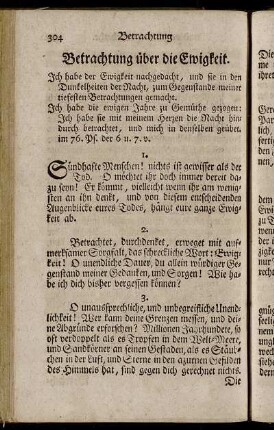 304 Betrachtung
Betrachtung über die Ewigkeit.
Ich habe der Ewigkeit nachgedacht, und sie in den
Dunkelheiten der Nacht, zum Gegenstande meiner
tiefesten Betrachtungen gemacht.
Ich habe die ewigen Jahre zu Gemüthe gezogen:
Ich habe sie mit meinem Herzen die Nacht hin
durch betrachtet, und mich in denselben geübet.
im 76. Ps. der 6 u. 7. v.
1.
Sündhafte Menschen! nichts ist gewisser als der
Tod. O möchtet ihr doch immer bereit da-
zu seyn! Er kommt, vielleicht wenn ihr am wenig-
sten an ihn denkt, und von diesem entscheidenden
Augenblicke eures Todes, hängt eure ganze Ewig-
keit ab.
2.
Betrachtet, durchdenket, erweget mit auf-
merksamer Sorgfalt, das schreckliche Wort: Ewig-
keit! O unendliche Dauer, du allein würdiger Ge-
genstand meiner Gedanken, und Sorgen! Wie ha-
be ich dich bisher vergessen können?
3.
O unaussprechliche, und unbegreifliche Unend-
lichkeit! Wer kann deine Grenzen messen, und dei-
ne Abgründe erforschen? Millionen Jahrhunderte, so
oft verdoppelt als es Tropfen in dem Welt-Meere,
und Sandkörner an seinen Gestaden, als es Stäub-
chen in der Luft, und Sterne in den azurnen Gefilden
des Himmels hat, sind gegen dich gerechnet nichts.
Die